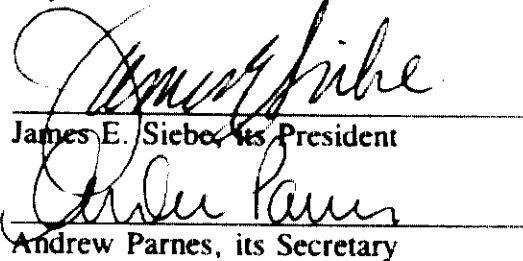 James E Siebe
James E. Siebe, its President
Andrew Parnes
Andrew Parnes, its Secretary